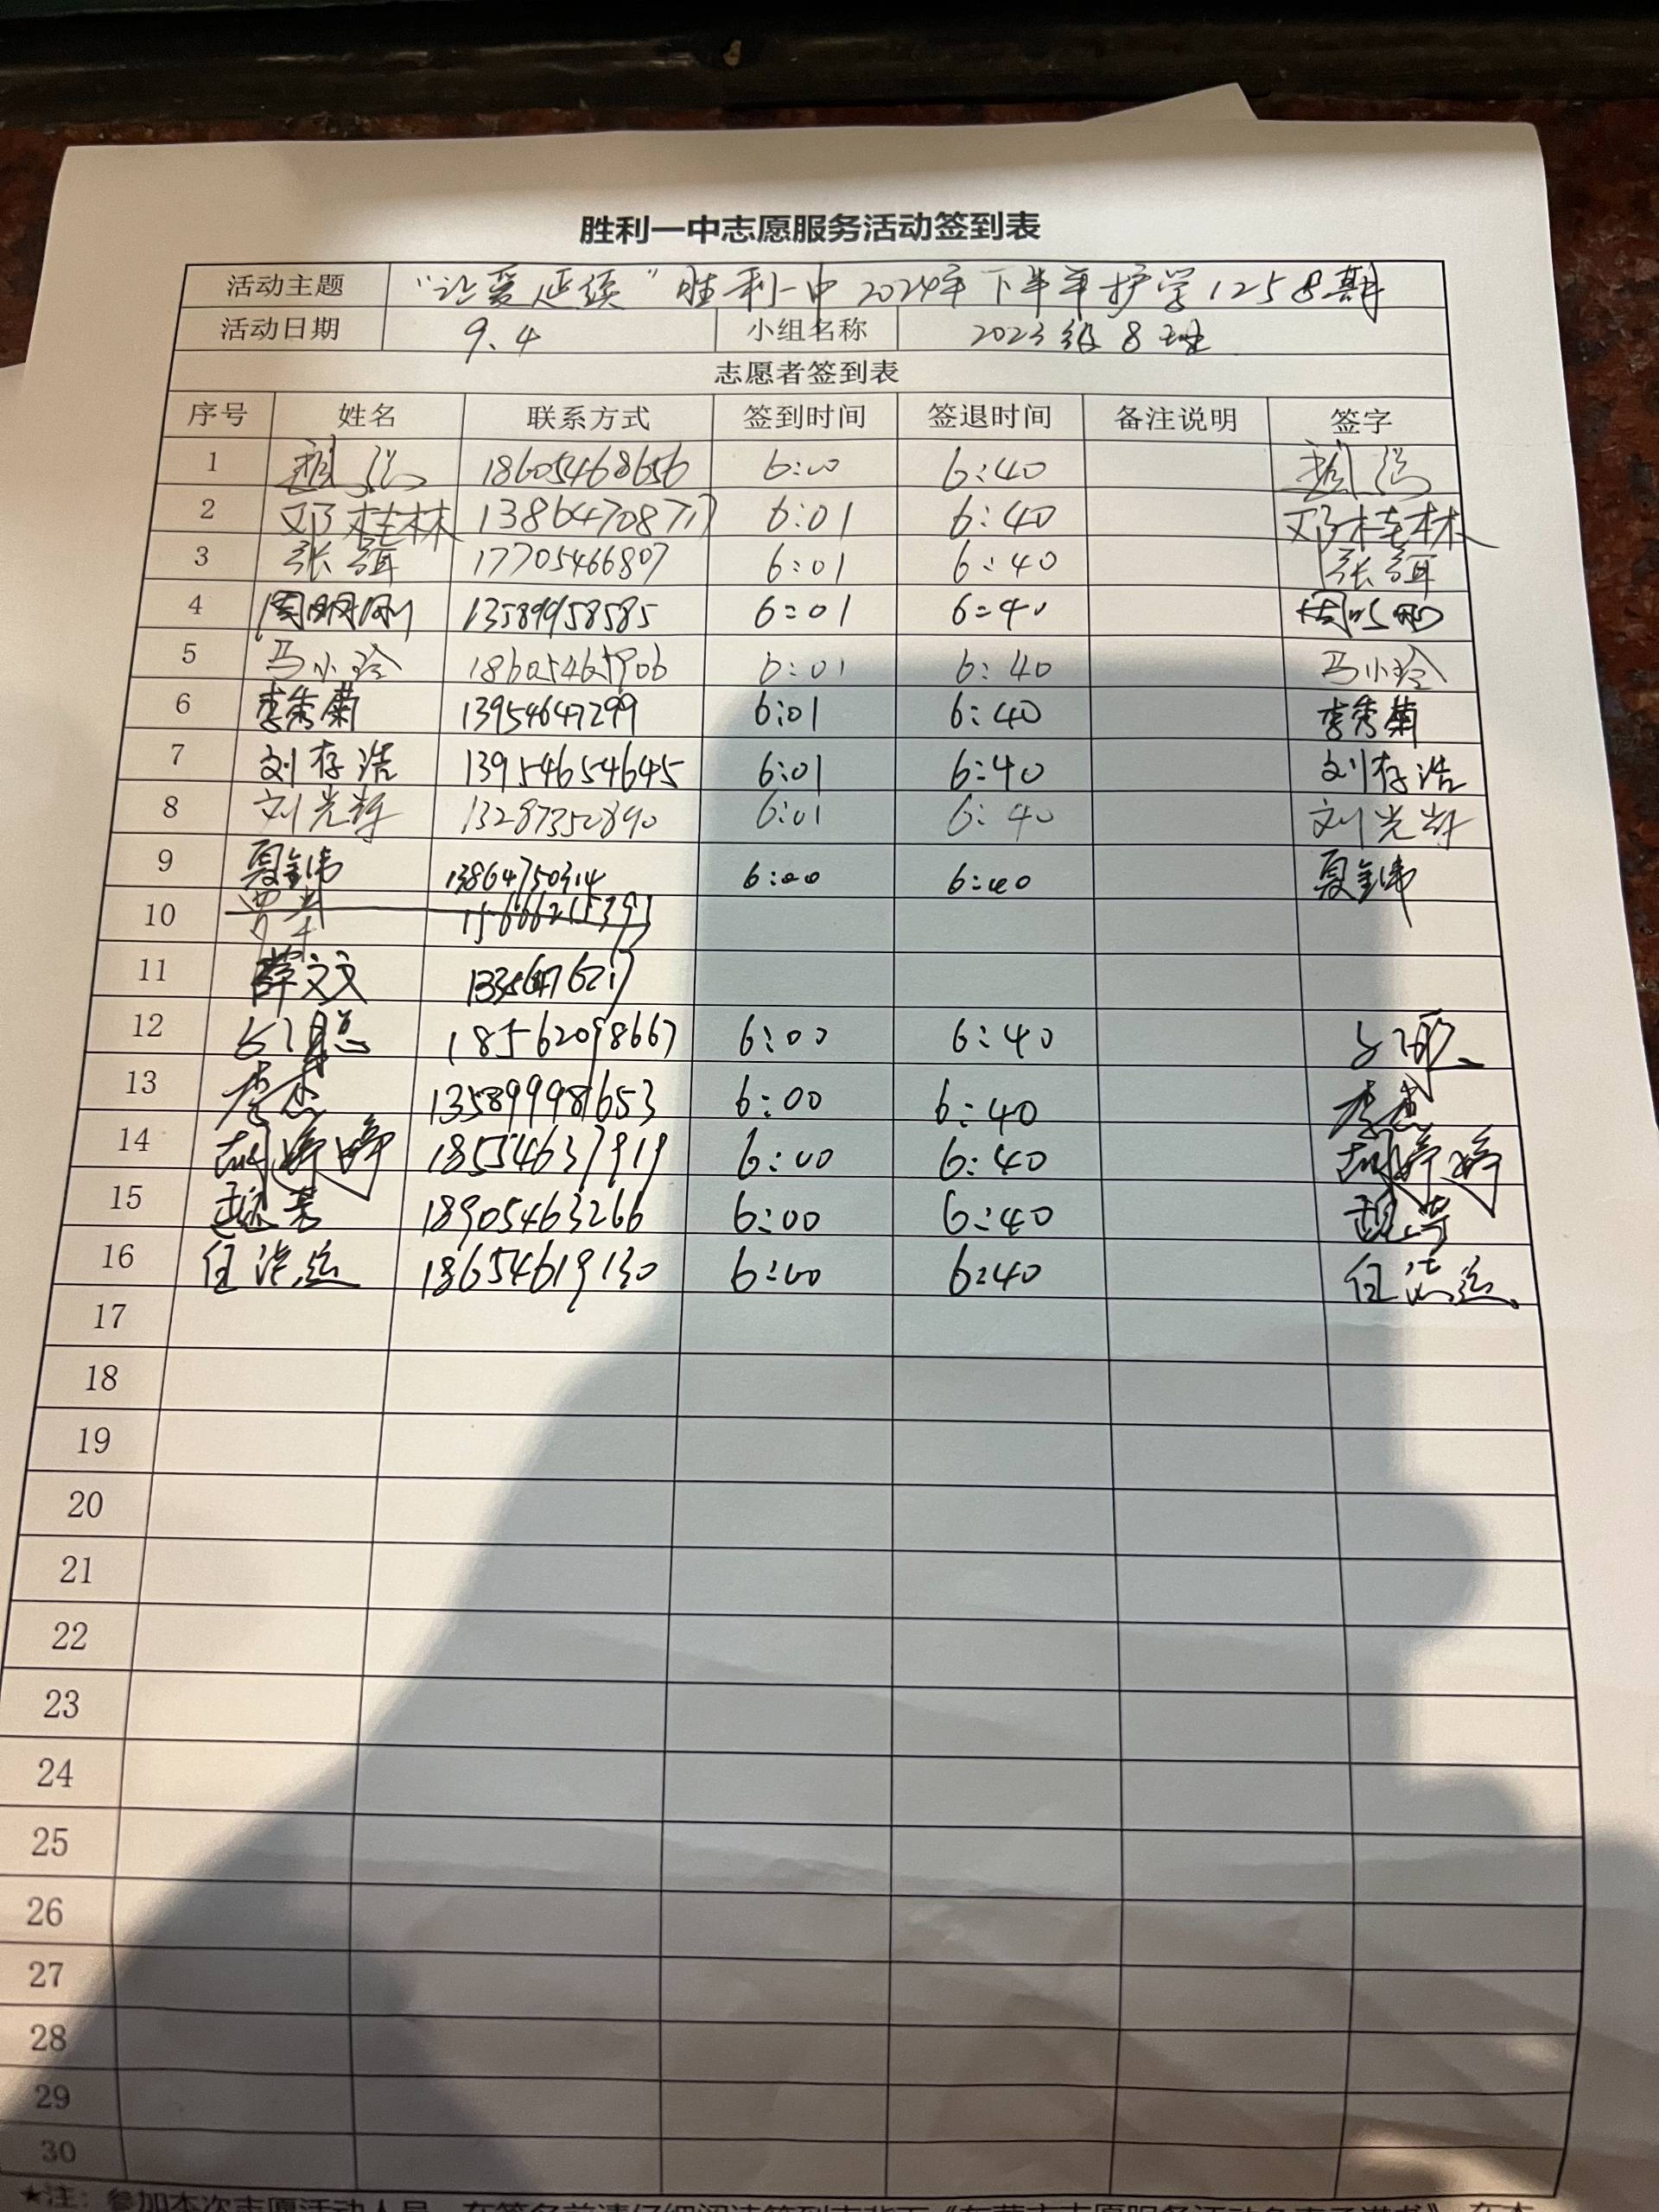 胜利一中志愿服务活动签到表
活动主题 “让爱延续”胜利一中2024年下半年护学1258期
活动日期 9.4 小组名称 2023级8班
志愿者签到表
序号 姓名 联系方式 签到时间 签退时间 备注说明 签字
1 18605468656 6:00 6:40
2 邓桂林 13864708717 6:01 6:40 邓桂林
3 张弭 17705466807 6:01 6:40 张弭
4 周明刚 13589958585 6:01 6:40
5 马小玲 18605465906 6:01 6:40 马小玲
6 李秀菊 13954647299 6:01 6:40 李秀菊
7 刘存浩 13954654645 6:01 6:40 刘存浩
8 刘光辉 13287350890 6:01 6:40 刘光辉
9 夏钊伟 13864750314 6:00 6:40 夏钊伟
10
11 薛文文
12 18562098667 6:00 6:40
13 李杰 13589998653 6:00 6:40 李杰
14 胡婷婷 18554637919 6:00 6:40 胡婷婷
15 18905463266 6:00 6:40
16 任 18654619130 6:00 6:40 任
17
18
19
20
21
22
23
24
25
26
27
28
29
30
★注：参加本次志愿活动人员，在签名前请仔细阅读签到表背面《东营市志愿服务活动免责承诺书》，在本